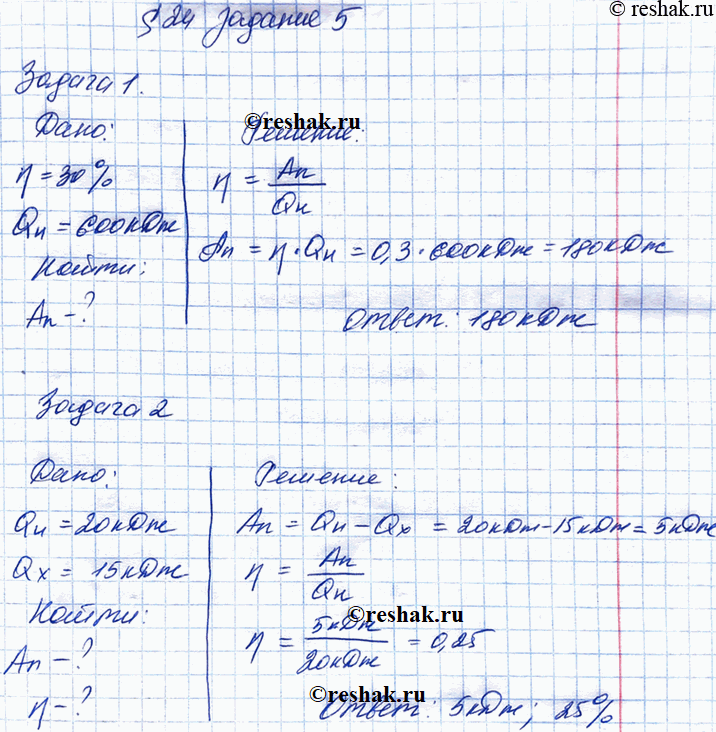 © reshak.ru
§ 24 Задание 5
Задача 1.
Дано:
η = 30%
Qн = 600кДж
Найти:
Aп - ?
©reshak.ru
Решение:
η = Aп / Qн
Aп = η · Qн = 0,3 · 600кДж = 180кДж
Ответ: 180кДж
Задача 2
Дано:
Qн = 20кДж
Qx = 15кДж
Найти:
Aп - ?
η - ?
Решение:
Aп = Qн - Qx = 20кДж - 15кДж = 5кДж
η = Aп / Qн
©reshak.ru
η = 5кДж / 20кДж = 0,25
©reshak.ru
Ответ: 5кДж; 25%